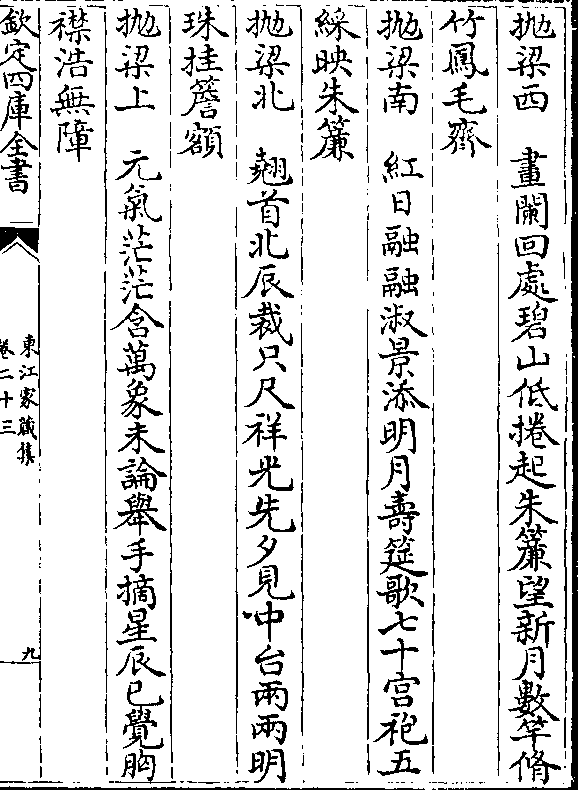 抛梁西　畫闌回處碧山低捲起朱簾望新月數竿脩
竹鳳毛齊
抛梁南　紅日融融淑景添明月壽筵歌七十宫袍五
綵映朱簾
抛梁北　翹首北辰裁只尺祥光先夕見中台兩兩明
珠挂簷額
抛梁上　元氣茫茫含萬象未論舉手摘星辰已覺胸
襟浩無障
欽定四庫全書
東江家藏集
卷二十三
九